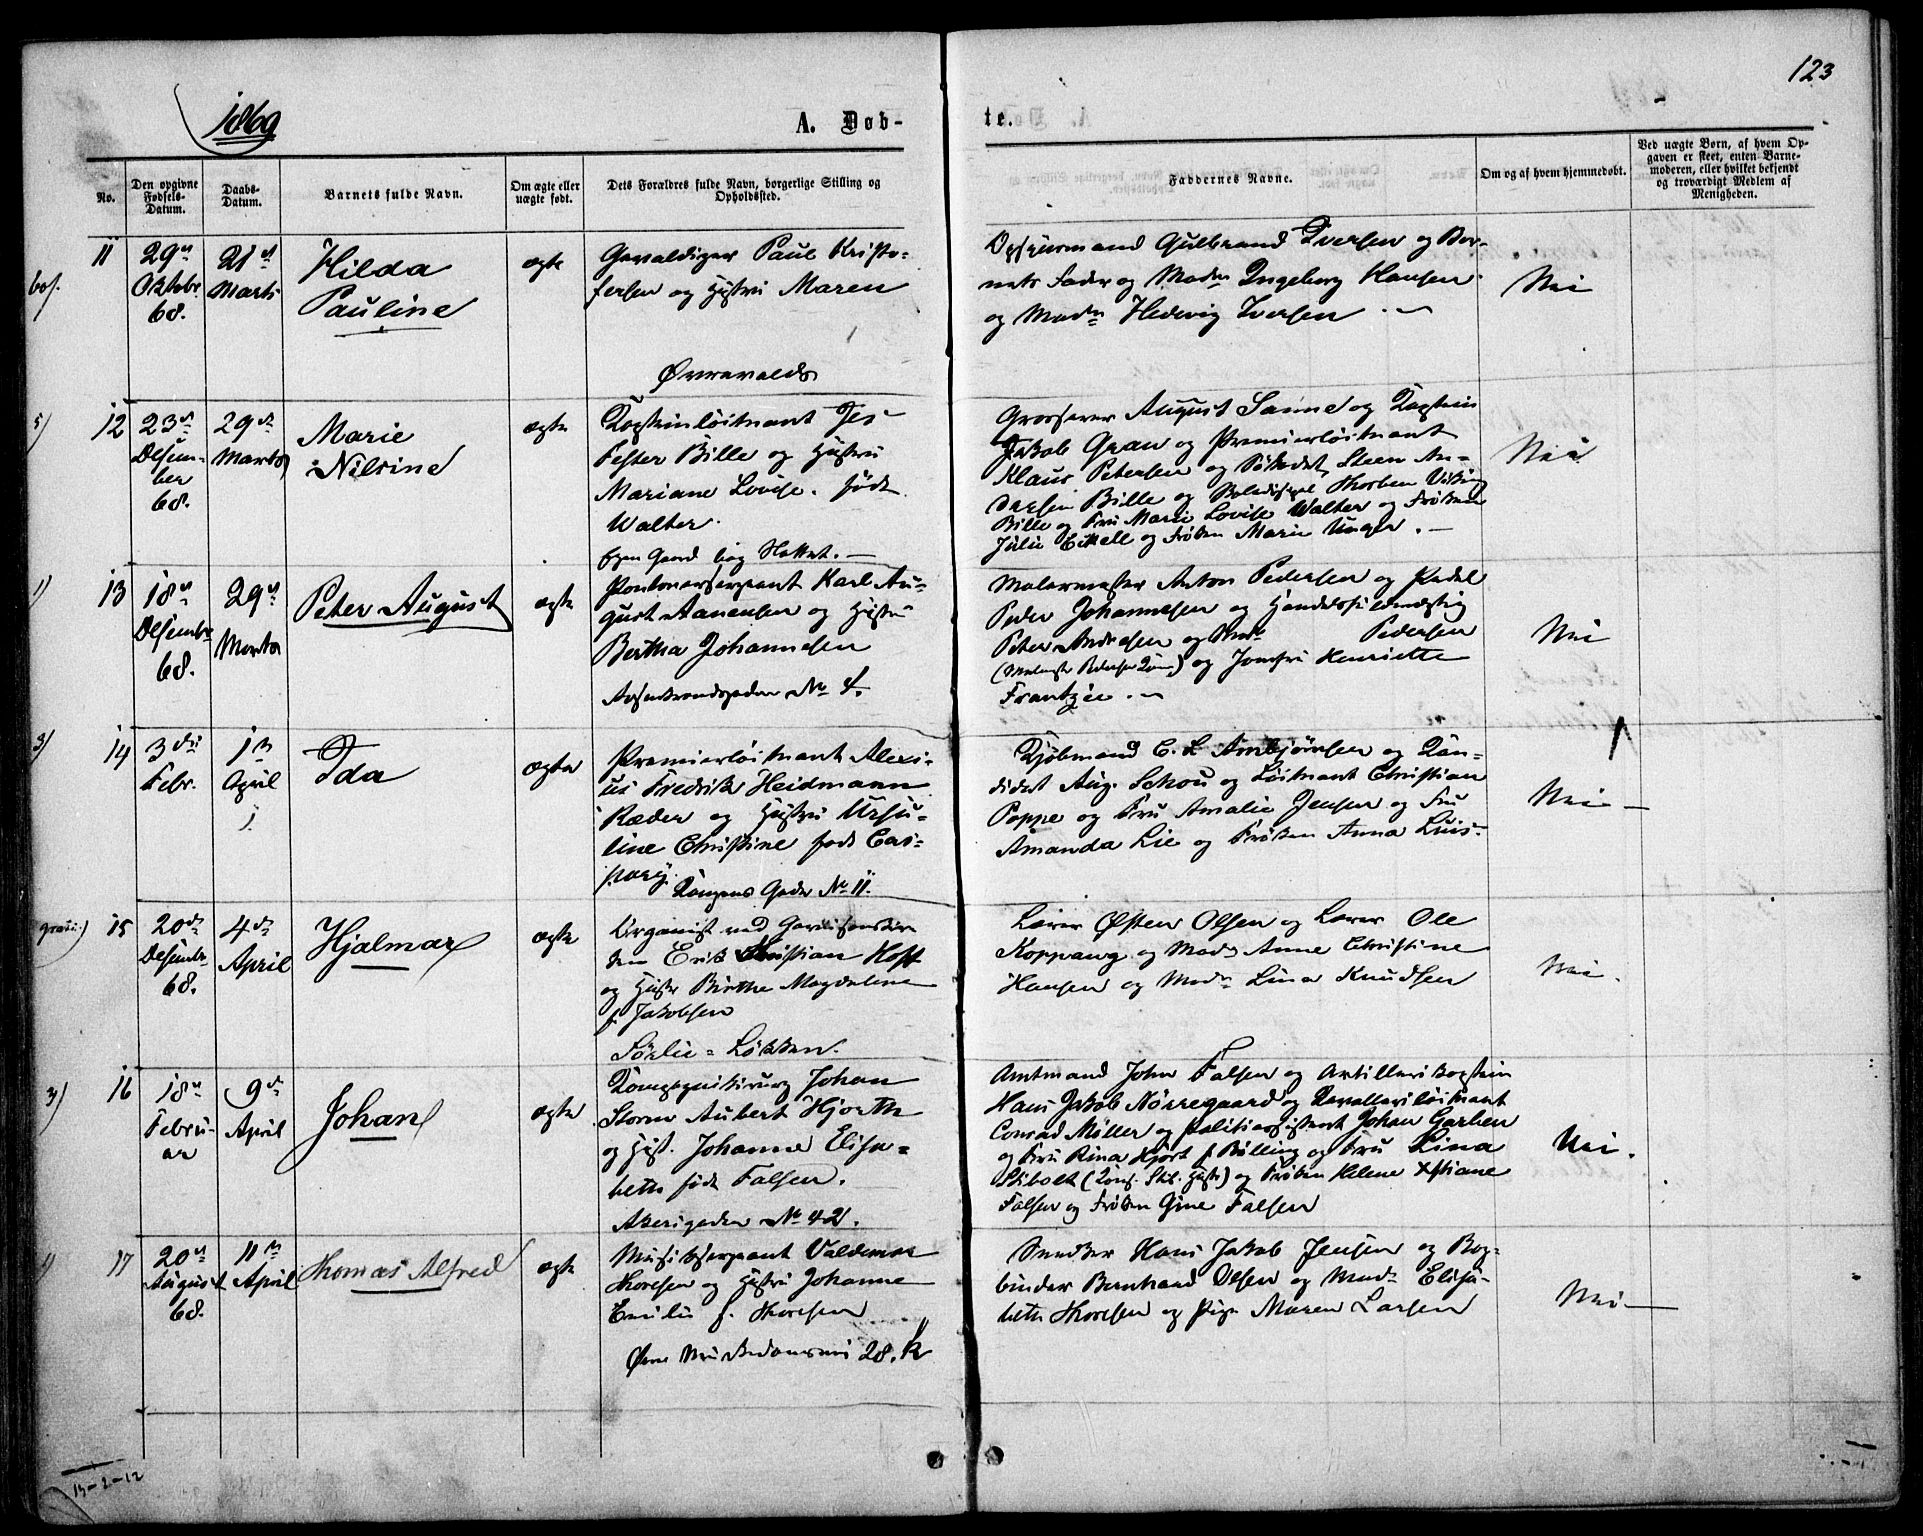 123
1869
A. Døb-
te.
No.
Den opgivne Fødsels-Datum.
Daabs-Datum.
Barnets fulde Navn.
Om ægte eller uægte født.
Dets Forældres fulde Navn, borgerlige Stilling og Opholdssted.
Faddernes Navne.
Om og af hvem hjemmedøbt.
Ved uægte Børn, af hvem Op-
gaven er skeet, enten Barne-
moderen, eller hvilket bekjendt
og troværdigt Medlem af
Menigheden.
11
29de
Oktober
68.
21st
Marts
Hilda
Pauline
ægte
Gevaldiger Paul Kristo-
fersen og Hustru Maren
Opsynsmand Gulbrand Iversen og Bar-
nets Fader og Madm Ingeborg Hansen
og Madm Hedevig Iversen.
Nei
5)
12
23de
Desem-
ber
68.
29de
Marts
Marie
Nilsine
ægte
Kapteinløitnant Jes
Fester Bille og Hustru
Mariane Lovise. født
Walter.
Egen Gaard bag Slottet.
Grosserer August Sanne og Kaptein
Jakob Gran og Premierløitnant
Klaus Petersen og Sökadet Steen An-
dersen Bille og Thorben
Bille og Fru Marie Lovise Walter og Frøken
Julie og Frøken Marie Unger.
Nei
1)
13
18de
Desember
68.
29de
Marts
Peter August
ægte
Pontonersergeant Karl Au-
gust Aanensen og Hustru
Bertha Johannesen
No 4.
Malermester Anton Pedersen og
Peder Johannesen og Handelsfuldmægtig
Peter Andresen og Pedersen
og Jomfru Henriette
Nei
3)
14
3die
Febr.
1ste
April
Ida
ægte
Premierløitnant Alexi-
us Fredrik Heidmann
Ræder og Hustru Ursu-
line Christine født Cas-
pary.
Kongens Gade No 11.
Kjøbmand C. L Ambjørnsen og Kan-
didat Aug. Schou og Løitnant Christian
Poppe og Fru Amalie Jensen og Fru
Amanda Lie og Frøken Anna Lms-
Nei
15
20de
Desember
68.
4de
April
Hjalmar
ægte
Organist ved Garnisonskir
ken Erik Christian Hoff
og Hustr Birthe Magdalene
f. Jakobsen
Sørlie-Løkken.
Lærer Østen Olsen og Lærer Ole
Koppang og Madm Anne Christine
Hansen og Madm Lina Knudsen
Nei.
3)
16
18de
Febru-
ar
9de
April
Johan
ægte
Kompagnikirurg Johan
Storm Aubert Hjorth
og Hust. Johanne Elisa-
beth født Falsen.
Akersgaden No 42.
Amtmand John Falsen og Artillerikaptein
Hans Jakob Nørregaard og Kavalleriløitnant
Conrad Møller og Politiassistent Johan Garben
og Fru Rina Hjort f. Bülling og Fru Lina
Stibolt og Frøken Helene Xstiane
Falsen og Frøken Gine Falsen
Nei.
17
20de
August
68.
11te
April
Thomas Alfred
ægte
Musiksergeant Valdemar
Thoresen og Hustru Johanne
Emilie f. Thoresen
28. K
Snedker Hans Jakob Jensen og Bog-
binder Bernhard Olsen og Madm Elisa-
beth Thoresen og Pige Maren Larsen
Nei
13-2-12